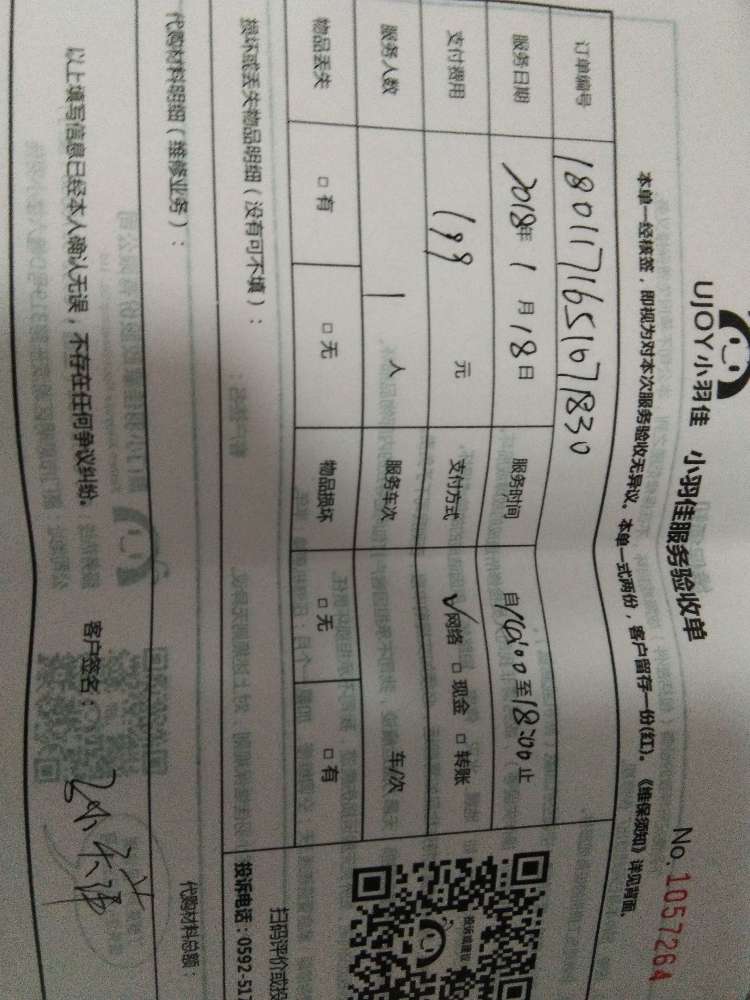 UJOY小羽佳 小羽佳服务验收单 No.1057264
本单一经核签，即视为对本次服务验收无异议。本单一式两份，客户留存一份(红)。《维保须知》详见背面。
订单编号 1801171651071830
服务日期 2018年1月18日 服务时间 自14:00至18:00止
支付费用 199 元 支付方式 √网络 □现金 □转账
服务人数 1 人 服务车次 车/次
物品丢失 □有 □无 物品损坏 □无 □有
损坏或丢失物品明细（没有可不填）：
扫码评价或投
投诉电话：0592-517
代购材料明细（维修业务）： 代购材料总额：
以上填写信息已经本人确认无误，不存在任何争议纠纷。 客户签名：